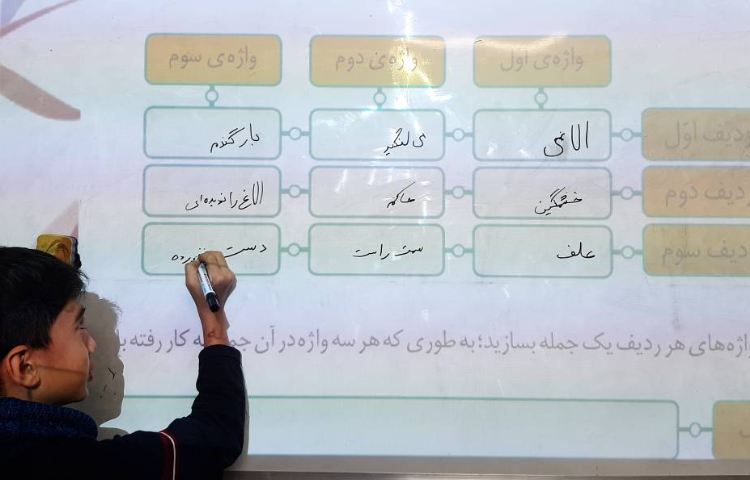 واژه‌ی اول واژه‌ی دوم واژه‌ی سوم
ردیف اول الاغی می لنگید بار گندم
ردیف دوم خشمگین حاکم الاغ را ندیده‌ای
دیف سوم علف سمت راست دست
واژه‌های هر ردیف یک جمله بسازید؛ به طوری که هر سه واژه در آن جمله به کار رفته با